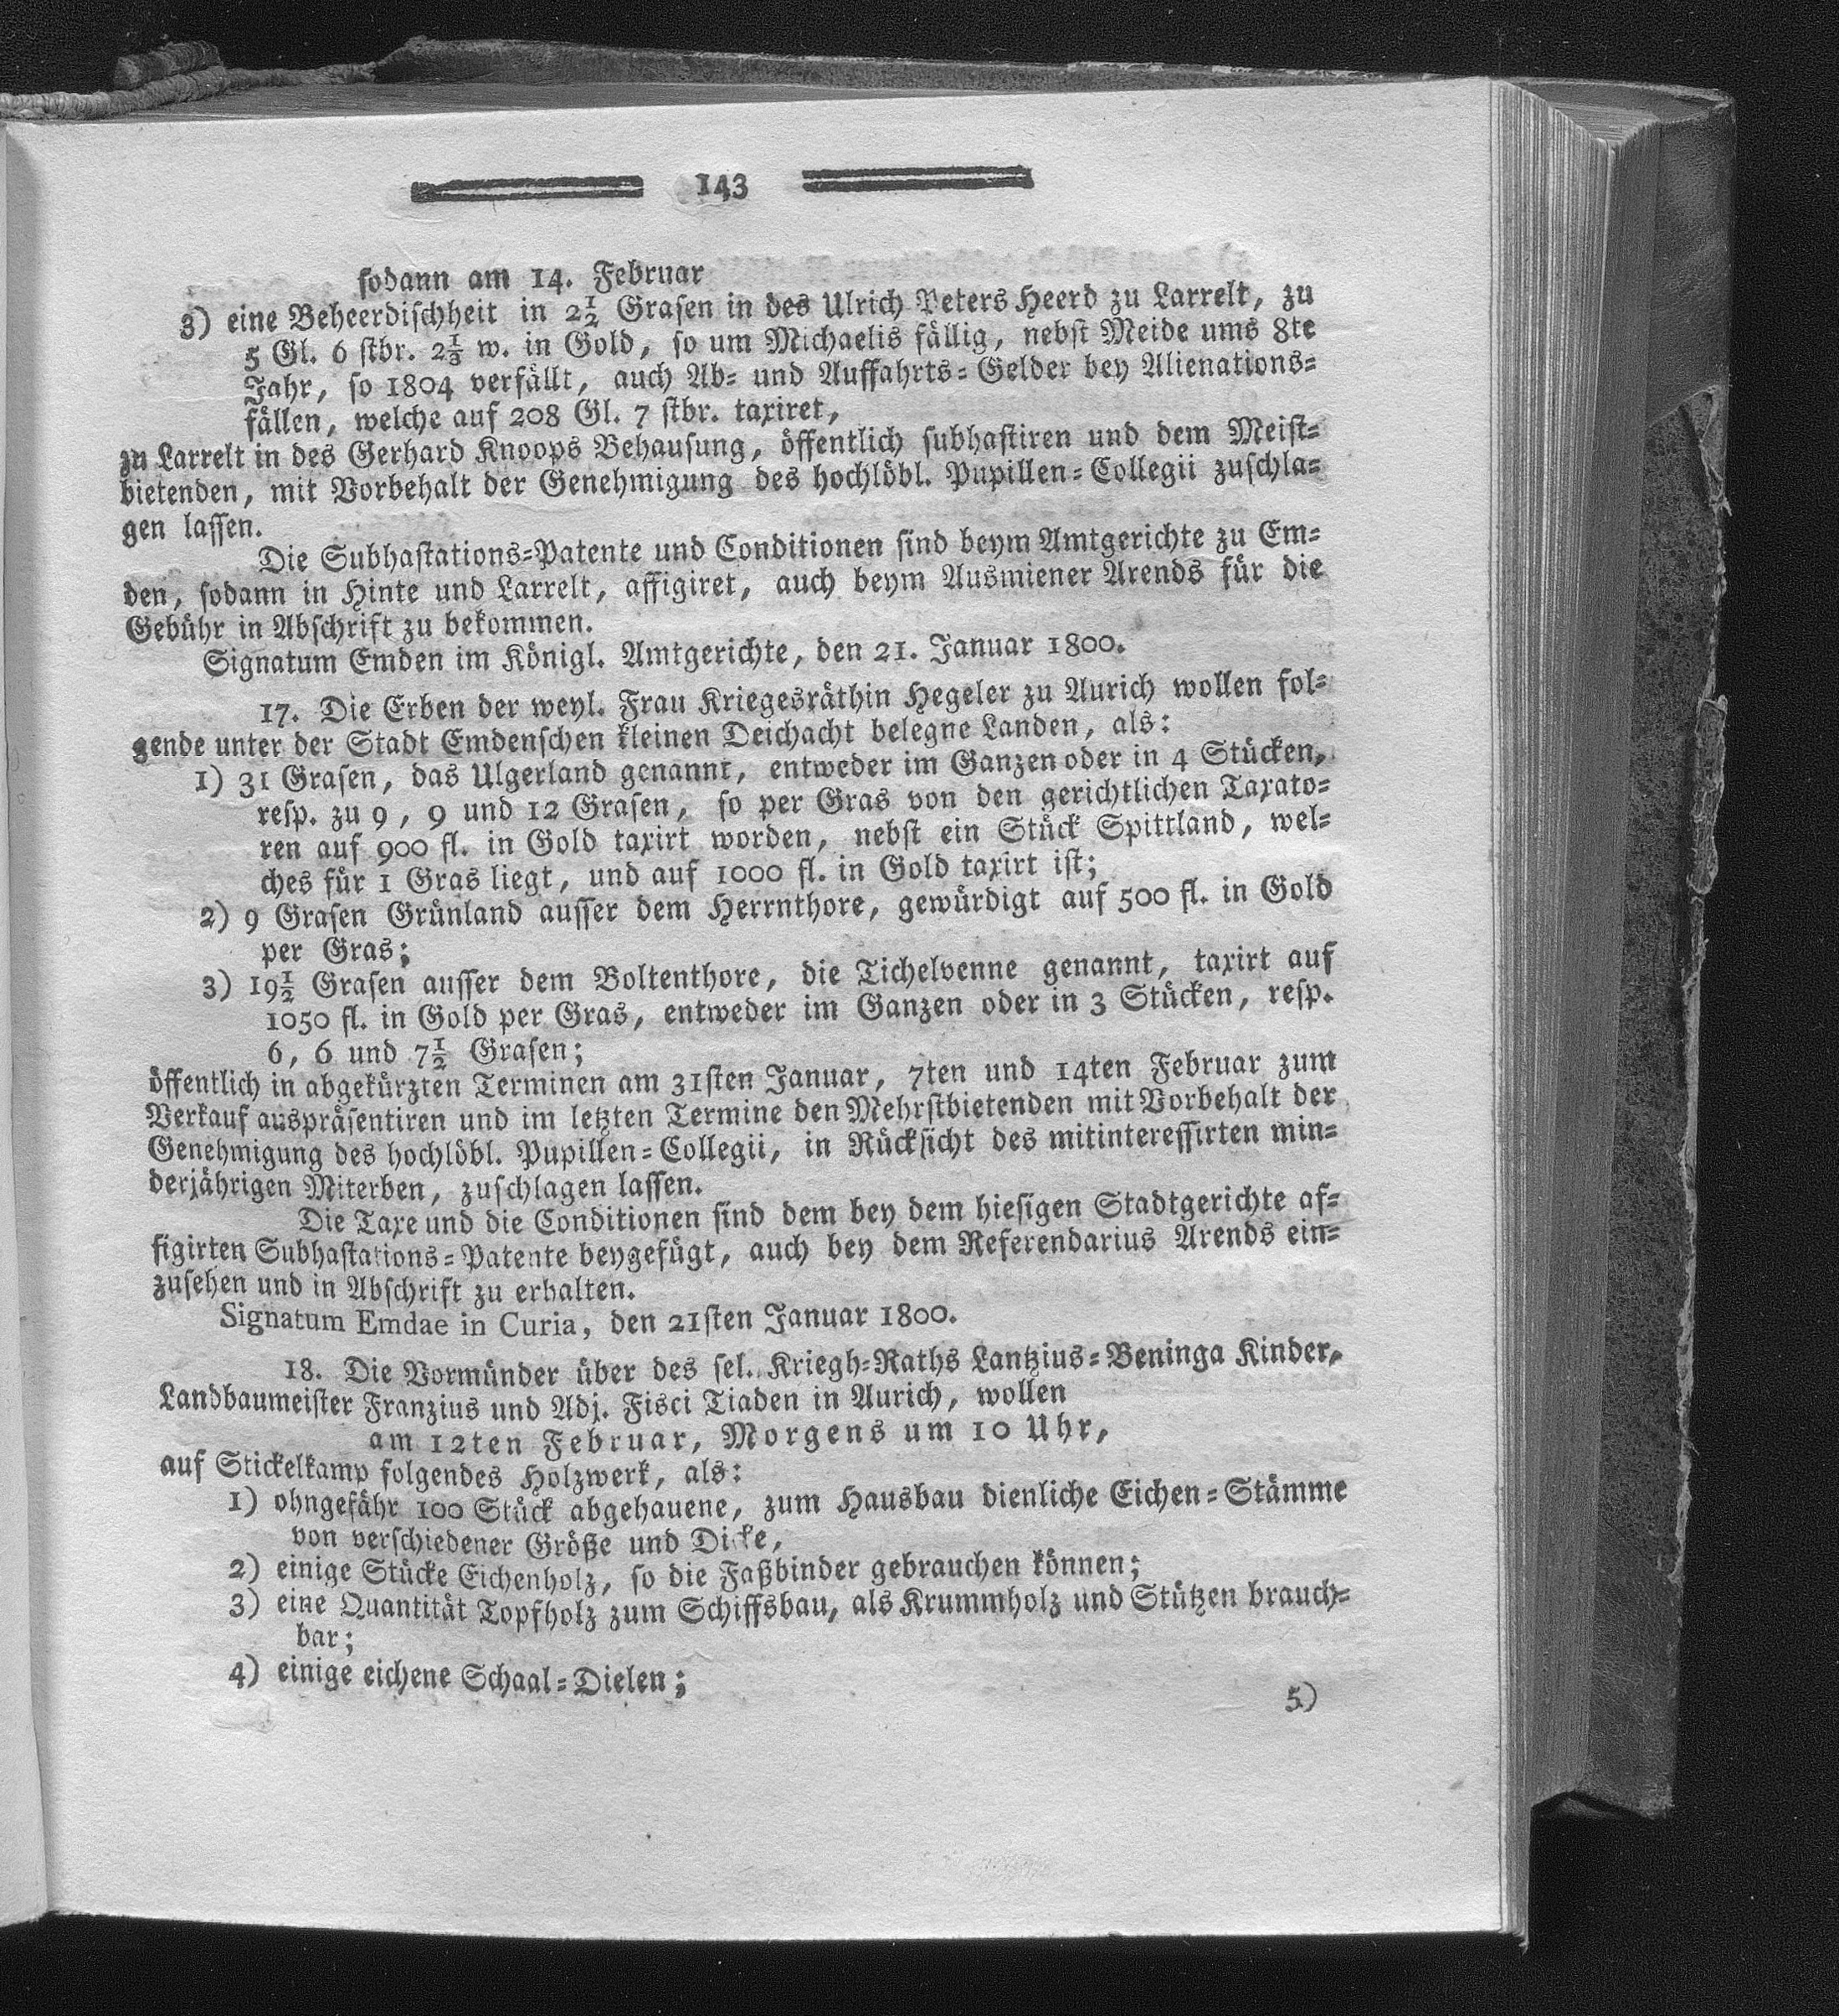 143
sodann am 14. Februar
3) eine Beheerdischheit in 2½ Grasen in des Ulrich Peters Heerd zu Larrelt, zu
5 Gl. 6 stbr. 2⅓ w. in Gold, so um Michaelis fällig, nebst Meide ums 8te
Jahr, so 1804 verfällt, auch Ab- und Auffahrts-Gelder bey Alienations-
fällen, welche auf 208 Gl. 7 stbr. taxiret,
zu Larrelt in des Gerhard Knoops Behausung, öffentlich subhastiren und dem Meist-
bietenden, mit Vorbehalt der Genehmigung des hochlöbl. Pupillen-Collegii zuschla-
gen lassen.
Die Subhastations-Patente und Conditionen sind beym Amtgerichte zu Em-
den, sodann in Hinte und Larrelt, affigiret, auch beym Ausmiener Arends für die
Gebühr in Abschrift zu bekommen.
Signatum Emden im Königl. Amtgerichte, den 21. Januar 1800.
17. Die Erben der weyl. Frau Kriegesräthin Hegeler zu Aurich wollen fol-
gende unter der Stadt Emdenschen kleinen Deichacht belegne Landen, als:
1) 31 Grasen, das Ulgerland genannt, entweder im Ganzen oder in 4 Stücken,
resp. zu 9, 9 und 12 Grasen, so per Gras von den gerichtlichen Taxato-
ren auf 900 fl. in Gold taxirt worden, nebst ein Stück Spittland, wel-
ches für 1 Gras liegt, und auf 1000 fl. in Gold taxirt ist;
2) 9 Grasen Grünland ausser dem Herrnthore, gewürdigt auf 500 fl. in Gold
per Gras;
3) 19½ Grasen ausser dem Boltenthore, die Tichelvenne genannt, taxirt auf
1050 fl. in Gold per Gras, entweder im Ganzen oder in 3 Stücken, resp.
6, 6 und 7½ Grasen;
öffentlich in abgekürzten Terminen am 31sten Januar, 7ten und 14ten Februar zum
Verkauf auspräsentiren und im letzten Termine den Mehrstbietenden mit Vorbehalt der
Genehmigung des hochlöbl. Pupillen-Collegii, in Rücksicht des mitinteressirten min-
derjährigen Miterben, zuschlagen lassen.
Die Taxe und die Conditionen sind dem bey dem hiesigen Stadtgerichte af-
figirten Subhastations-Patente beygefügt, auch bey dem Referendarius Arends ein-
zusehen und in Abschrift zu erhalten.
Signatum Emdae in Curia, den 21sten Januar 1800.
18. Die Vormünder über des sel. Kriegh-Raths Lantzius-Beninga Kinder,
Landbaumeister Franzius und Adj. Fisci Tiaden in Aurich, wollen
am 12ten Februar, Morgens um 10 Uhr,
auf Stickelkamp folgendes Holzwerk, als:
1) ohngefähr 100 Stück abgehauene, zum Hausbau dienliche Eichen-Stämme
von verschiedener Größe und Dicke,
2) einige Stücke Eichenholz, so die Faßbinder gebrauchen können;
3) eine Quantität Topfholz zum Schiffsbau, als Krummholz und Stützen brauch-
bar;
4) einige eichene Schaal-Dielen;
5)